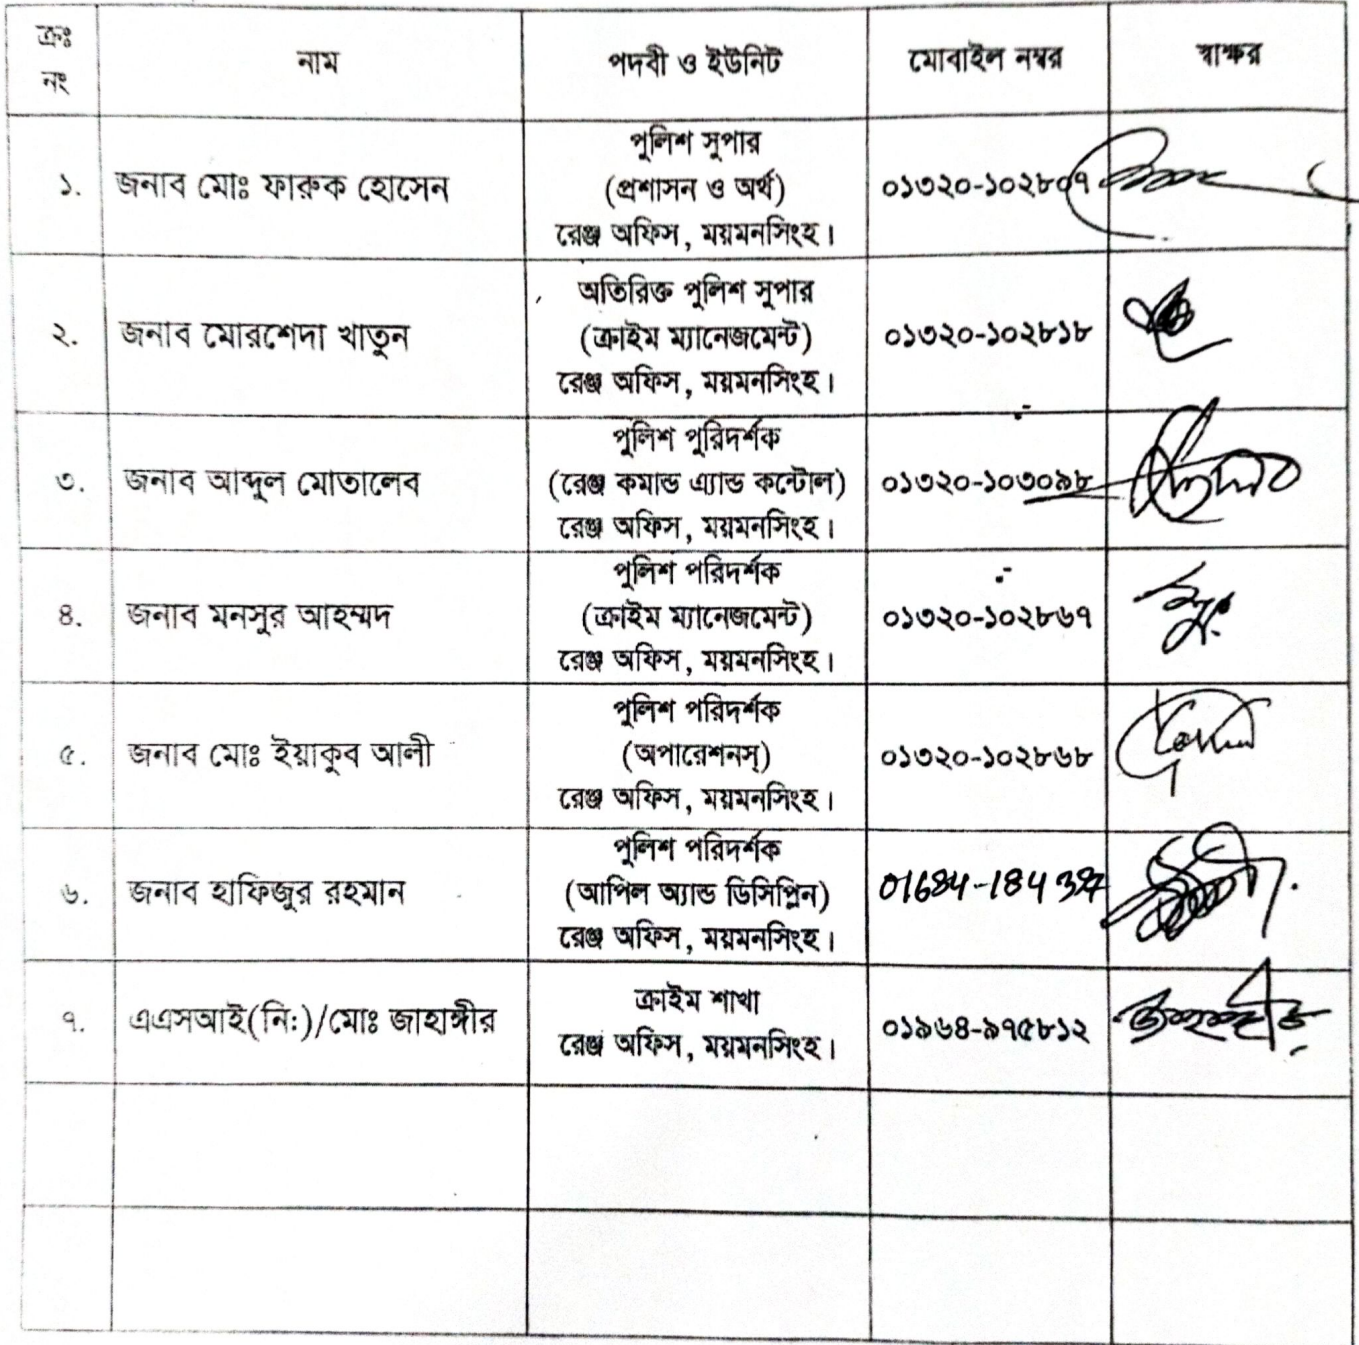 ক্রঃ নং	নাম	পদবী ও ইউনিট	মোবাইল নম্বর	স্বাক্ষর
১.	জনাব মোঃ ফারুক হোসেন	পুলিশ সুপার
(প্রশাসন ও অর্থ)
রেঞ্জ অফিস, ময়মনসিংহ।	০১৩২০-১০২৮০৭
২.	জনাব মোরশেদা খাতুন	অতিরিক্ত পুলিশ সুপার
(ক্রাইম ম্যানেজমেন্ট)
রেঞ্জ অফিস, ময়মনসিংহ।	০১৩২০-১০২৮১৮
৩.	জনাব আব্দুল মোতালেব	পুলিশ পুরিদর্শক
(রেঞ্জ কমান্ড এ্যান্ড কন্টোল)
রেঞ্জ অফিস, ময়মনসিংহ।	০১৩২০-১০৩০৯৮
৪.	জনাব মনসুর আহম্মদ	পুলিশ পরিদর্শক
(ক্রাইম ম্যানেজমেন্ট)
রেঞ্জ অফিস, ময়মনসিংহ।	০১৩২০-১০২৮৬৭
৫.	জনাব মোঃ ইয়াকুব আলী	পুলিশ পরিদর্শক
(অপারেশনস্)
রেঞ্জ অফিস, ময়মনসিংহ।	০১৩২০-১০২৮৬৮
৬.	জনাব হাফিজুর রহমান	পুলিশ পরিদর্শক
(আপিল অ্যান্ড ডিসিপ্লিন)
রেঞ্জ অফিস, ময়মনসিংহ।
৭.	এএসআই(নি:)/মোঃ জাহাঙ্গীর	ক্রাইম শাখা
রেঞ্জ অফিস, ময়মনসিংহ।	০১৯৬৪-৯৭৫৮১২